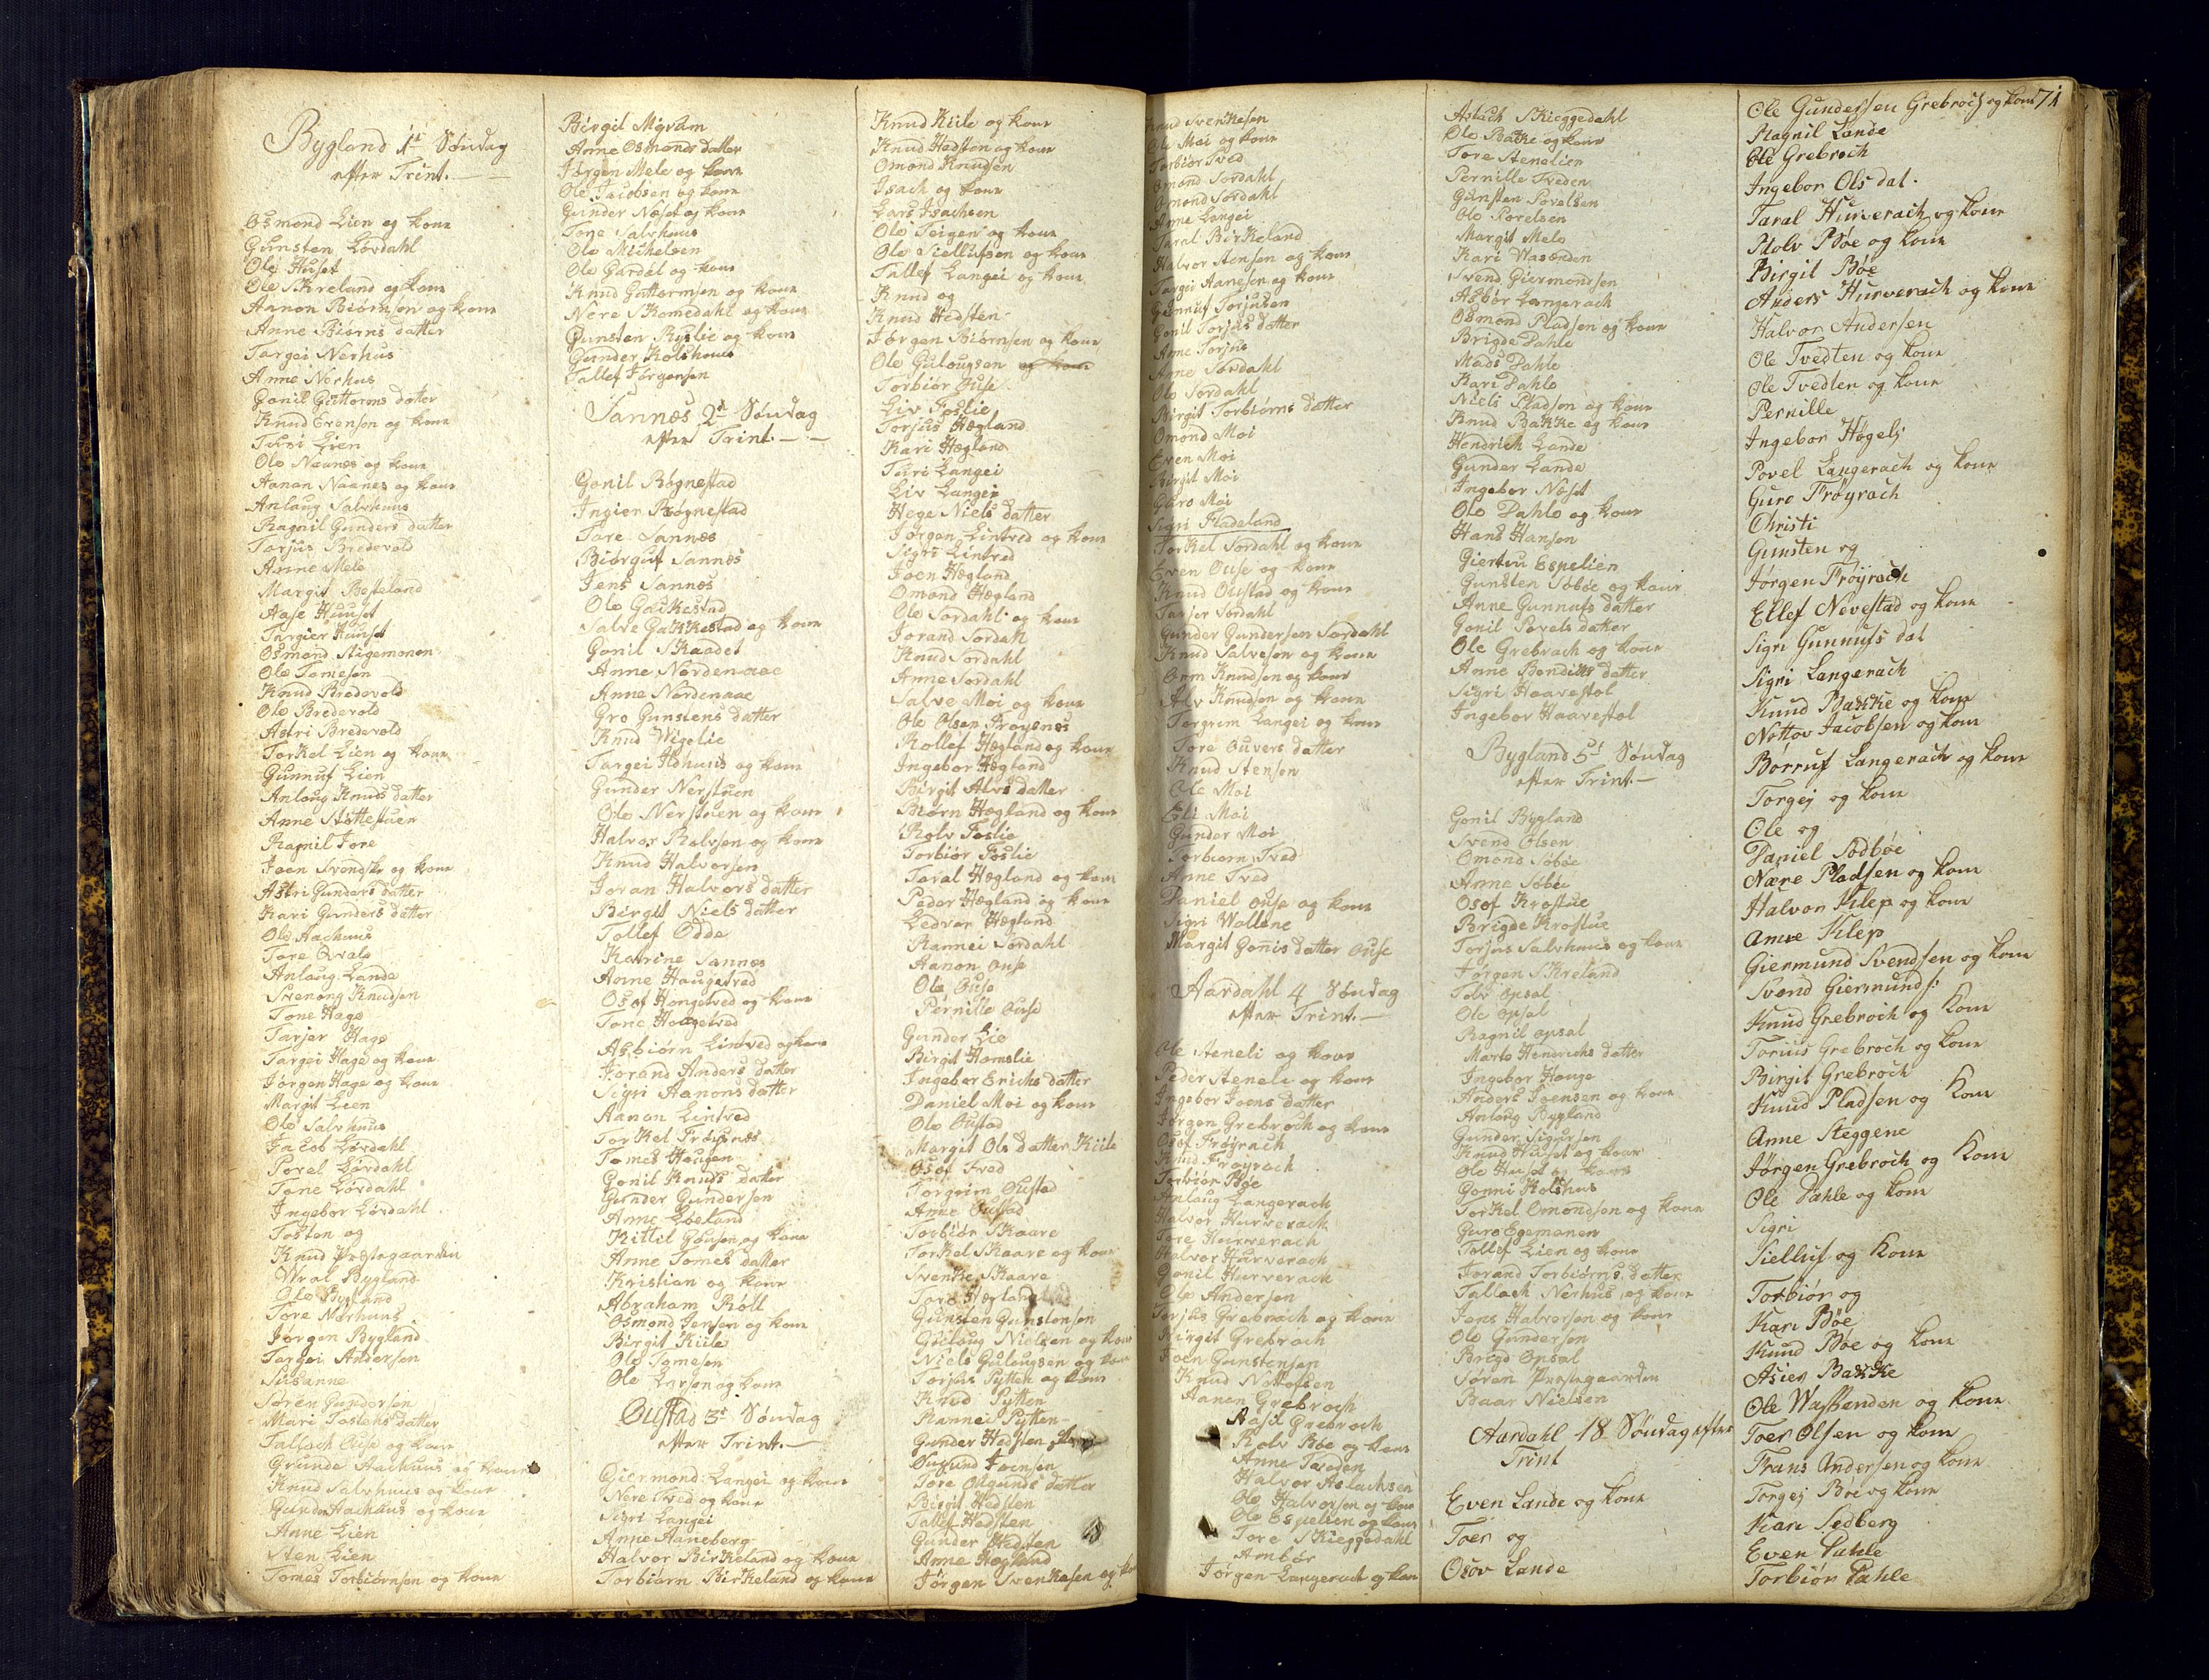 Bygland 1st Søndag
efter Trint.
Osmond Lien og kone
Gunsten Lørdahl
Ole Huset
Ole Skreland og kone
Aanon Biørnsøn og kone
Anne Biørns datter
Targei Nerhus
Anne Nerhus
Gonil Guttorms datter
Knud Evensøn og kone
Turi Lien
Ole Naanes og kone
Aanon Naanes og kone
Anlaug Salvhuus
Ragnil Gunders datter
Torjus Bredevold
Anne Mele
Margit Besteland
Aase Huuset
Targier Huuset
Osmond Stigemonen
Ole Tomesøn
Knud Bredevold
Ole Bredevold
Astri Bredevold
Torkel Lien og kone
Gunnuf Lien
Anlaug Knuds datter
Anne Støttestuen
Ragnil Jore
Joen Svendske og kone
Astri Gunders datter
Kari Gunders datter
Ole Aachuus
Tore Qvale
Anlaug Lande
Svenong Knudsen
Tone Hage
Tarjer Hage
Targei Hage og kone
Jørgen Hage og kone
Margit Lien
Ole Salvhuus
Jacob Lørdahl
Povel Lørdahl
Tone Lørdahl
Ingebor Lørdahl
Tosten og
Knud Præstegaarden
Wral Bygland
Ole Bygland
Tore Nerhuus
Jørgen Bygland
Targei Andersen
Susanne
Søren Gundersen
Mari Tostens datter
Tallach Ouse og kone
Grunde Aachuus og kone
Knud Salvhuus og kone
Gunder Aachuus og kone
Anne Lien
Sten Lien
Tomes Torbiørnsen og kone
Birgit Mgram
Anne Osmonds datter
Jørgen Mele og kone
Ole Jacobsen og kone
Gunder Næset og kone
Tone Salvhuus
Ole Mickelsen
Ole Gardal og kone
Knud Guttormsen og kone
Nere Skomedahl og kone
Gunsten Ryslie og kone
Gunder Kolshuus
Tallef Jørgensen
Sannes 2den Søndag
efter Trint.
Gonil Røgnestad
Ingier Røgnestad
Tare Sannes
Biørguf Sannes
Jens Sannes
Ole Gackestad
Salve Gakkestad og kone
Gonil Skaadet
Anne Nordenaae
Anne Nordenaae
Gro Gunstens datter
Knud Wigelie
Targei Ildhuus og kone
Gunder Nerstuen
Ole Nerstuen og kone
Halvor Rolvsen og kone
Knud Halvorsen
Joran Halvors datter
Birgit Niels datter
Tollef Odde
Katrine Sannes
Anne Haugetved
Osof Hougetved og kone
Tone Hougetved
Asbiørn Lintved og kone
Jorand Anders datter
Sigri Aanons datter
Aanon Lintved
Torkel Frøysnæs
Tomes Haugen
Gonil Knuds datter
Gunder Gundersen
Anne Løeland
Kittil Gousen og kone
Anne Tomes datter
Kristian og kone
Abraham Roll
Osmond Jensen og kone
Birgit Kiile
Ole Tomesen
Ole Larsen og kone
Oustad 3de Søndag
efter Trint.
Giermond Langei og kone
Nere Tved og kone
Sigri Langei
Anne Aaneberg
Halvor Birkeland og kone
Torbiørn Birkeland og kone
Knud Kiile og kone
Knud Hedsten og kone
Omond Knudsen
Isach og kone
Lars Isachsen
Ole Teigen og kone
Ole Siellufsen og kone
Tallef Langei og kone
Knud og
Knud Hedsten
Jørgen Biørnsen og kone
Ole Gulougsen og kone
Torbiør Ouse
Liv Foslie
Torjus Hægland
Kari Hægland
Turi Langei
Liv Langei
Hege Niels datter
Jørgen Lintved og kone
Sigri Lintved
Joen Hægland
Omond Hægland
Ole Sordahl og kone
Jorand Sordahl
Knud Sordahl
Anne Sordahl
Salve Moi og kone
Ole Olsen Frøysnes
Rollef Hægland og kone
Ingebor Hægland
Birgit Alvs datter
Biørn Hægland og kone
Rolv Foslie
Torbiør Foslie
Taral Hægland og kone
Peder Hægland og kone
Ledvor Hægland
Rannei Sordahl
Aanon Ouse
Ole Ouse
Pernille Ouse
Gunder Lie
Birgit Homslie
Ingebor Erichs datter
Daniel Moi og kone
Ole Oustad
Margit Ols datter Kiile
Osof Tved
Torgrim Oustad
Anne Oustad
Torbiør Skaare
Torkel Skaare og kone
Svenke Skaare
Tore Hægland
Gunsten Gunstensen
Guloug Nielsen og kone
Niels Gulougsen og kone
Torjus Pytten og kone
Knud Pytten
Rannei Pytten
Gunder Hedsten
Ougund Joensen
Tore Ougunds datter
Birgit Hedsten
Tallef Hedsten
Gunder Hedsten
Anne Hægland
Jørgen Svenkesen og kone
Knud Svenkesen
Ole Moi og kone
Torbiør Tved
Omond Sordahl
Omond Sordahl
Anne Langei
Taral Birkeland
Halvor Stensen og kone
Targie Aanesen og kone
Gunnuf Torjusen
Gonil Torjus datter
Anne Torjus
Anne Sordahl
Ole Sordahl
Birgit Torbiørns datter
Omond Moi
Even Moi
Birgit Moi
Guro Moi
Sigri Fladeland
Torkel Sordahl og kone
Even Ouse og kone
Knud Oustad og kone
Tarjer Sordahl
Gunder Gundersen Sordahl
Knud Salvesen og kone
Orm Knudsen og kone
Alv Knudsen og kone
Torgrim Langei og kone
Tore Ouvers datter
Knud Stensen
Ole Moi
Eli Moi
Gunder Moi
Torbiorn Tved
Anne Tved
Daniel Ouse og kone
Sigri Wollene
Margit Gonnis datter Ouse
Aardahl 4 Søndag
efter Trint.
Ole Steneli og kone
Peder Steneli og kone
Ingebor Joens datter
Jørgen Grebroch og kone
Osof Frøyrach
Knud Frøyrach
Torbiør Bøe
Anlaug Langerach
Halvor Hurverach
Tore Hurverach
Halvor Hurverach
Gonil Hurverach
Ole Andersen
Torjus Grebroch og kone
Birgit Grebroch
Joen Gunstensen
Knud Nottofsen
Aanen Grebroch
Aase Grebroch
Rolv Bøe og kone
Anne Tveden
Halvor Aslachsen
Ole Halvorsen og kone
Ole Espelien og kone
Tore Skieggedahl
Arnbør
Jørgen Langerach og kone
Aslach Skieggedahl
Ole Bakke og kone
Tore Stenelien
Pernille Tveden
Gunsten Povelsen
Ole Povelsen
Margit Mele
Kari Wasenden
Svend Giermondsen
Asbør Langerach
Osmond Pladsen og kone
Brigde Dahle
Mads Dahle
Kari Dahle
Niels Pladsen og kone
Knud Bakke og kone
Hendrich Lande
Gunder Lande
Ingebor Næset
Ole Dahle og kone
Hans Hansen
Giertru Espelien
Gunsten Søbøe og kone
Anne Gunnufs datter
Gonil Povels datter
Ole Grebroch og kone
Anne Bendiks datter
Sigri Haavestøl
Ingebor Haavestøl
Bygland 5te Søndag
efter Trint.
Gonil Bygland
Svend Olsen
Omond Søbøe
Anne Søbøe
Osof Krostue
Brigde Krostue
Torjus Salvhuus og kone
Jørgen Skreland
Tolv Opsal
Ole Opsal
Ragnil Opsal
Marte Hendrichs datter
Ingebor Hauge
Anders Joensen og kone
Anloug Bygland
Gunder Sigursen
Knud Huset og kone
Ole Huset og kone
Gonni Kolshus
Torkel Omondsen og kone
Guro Egemonen
Tollef Lien og kone
Jorand Torbiørns datter
Tallach Nerhus og kone
Jens Halvorsen og kone
Ole Gundersen
Bregd Opsal
Søren Præstegaarden
Baar Nielsen
Aardahl 18 Søndag efter
Trint
Even Lande og kone
Toer og
Osov Lande
Ole Gundersen Grebroch og kone 71
Ragnil Lande
Ole Grebroch
Ingebor Ols dat.
Taral Hurverach og kone
Rolv Bøe og kone
Birgit Bøe
Anders Hurverach og kone
Halvor Andersen
Ole Tvedten og kone
Ole Tvedten og kone
Pernille
Ingebor Høgelj
Povel Langerach og kone
Guro Frøyrach
Christi
Gunsten og
Jørgen Frøyrach
Ellef Nevestad og kone
Sigri Gunnufs dat
Sigri Langerach
Knud Bakke og kone
Nottov Jacobsen og kone
Børruf Langerach og kone
Torgej og kone
Ole og
Daniel Sodbøe
Nære Pladsen og kone
Halvor Klep og kone
Anne Klep
Giermund Svendsen og kone
Svend Giermunds:
Knud Grebroch og Kone
Torius Grebroch og kone
Birgit Grebroch
Knud Pladsen og Kone
Anne Steggene
Jørgen Grebroch og Kone
Ole Dahle og kone
Sigri
Sielluf og Kone
Torbiør og
Kari Bøe
Knud Bøe og kone
Asier Bakke
Ole Wassenden og kone
Toer Olsen og kone
Frans Andersen og kone
Torgej Bøe og kone
Kari Sedberg
Even Dahle
Torbiør Dahle